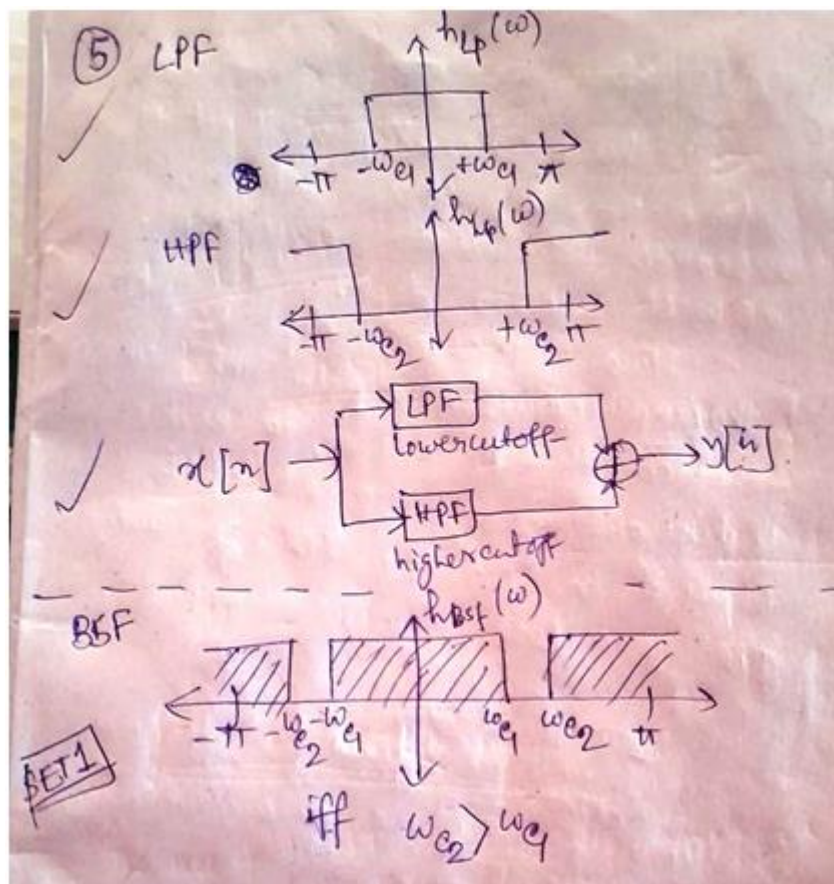 ⑤ LPF
h_LP(ω)
-π -ω_c1 +ω_c1 π
HPF
h_Lp(ω)
-π -ω_c2 +ω_c2 π
x[n]
LPF
lowercutoff
HPF
highercutoff
y[n]
BSF
h_BSF(ω)
-π -ω_c2 -ω_c1 ω_c1 ω_c2 π
SET1
iff ω_c2 > ω_c1